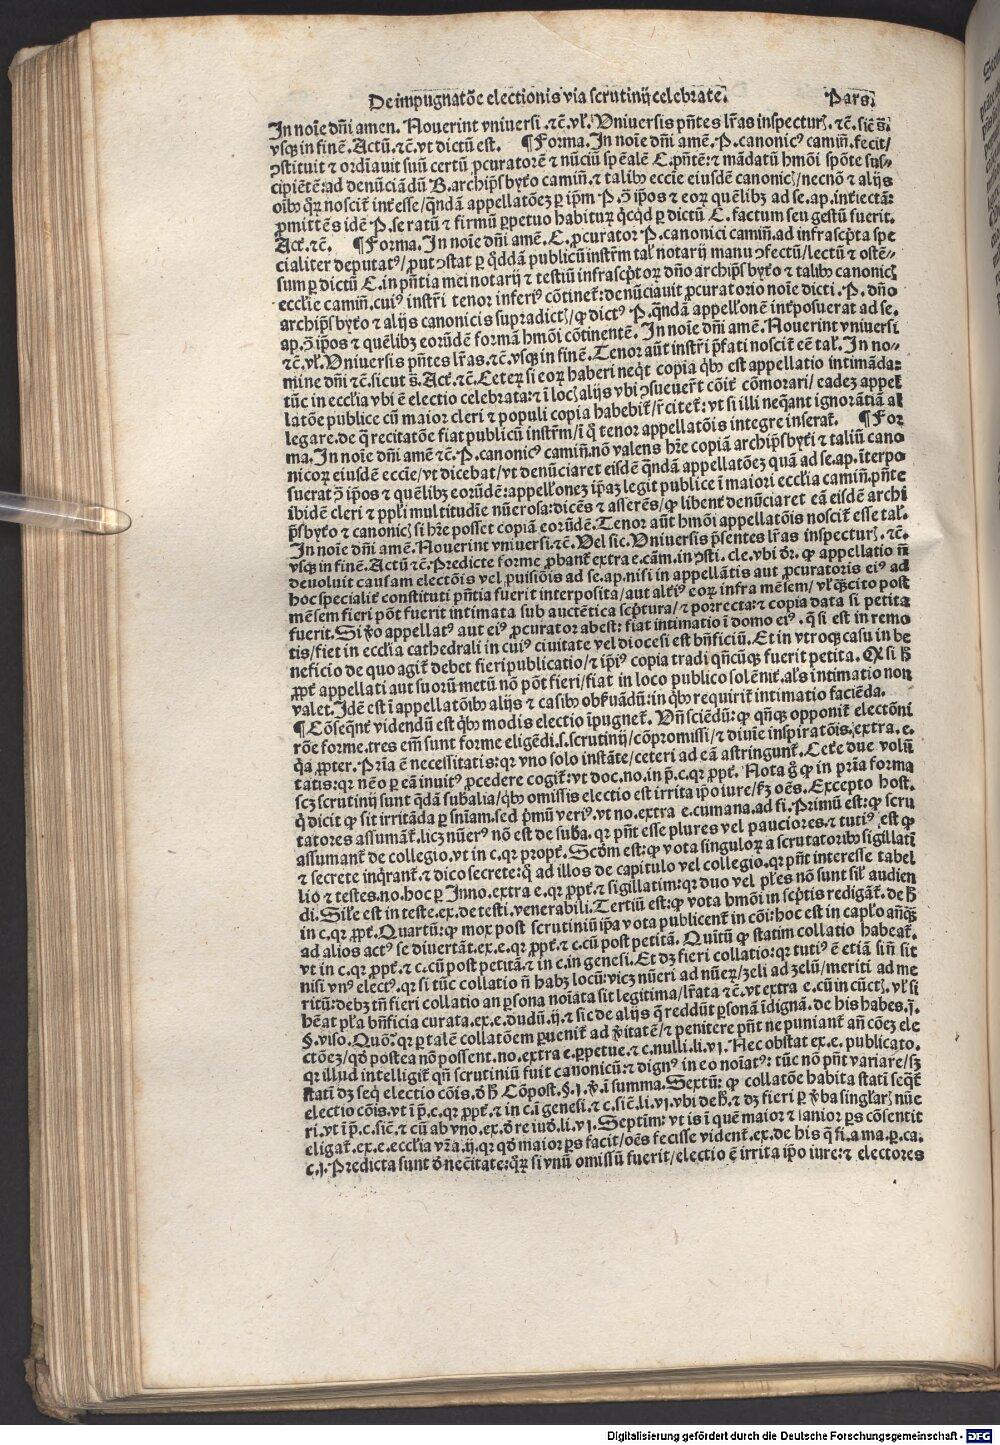 De impugnatõe electionis via scrutinij celebrate. Pars.
In noĩe dñi amen. Nouerint vniuersi .⁊c̃. vl̃. Vniuersis pñtes lr̃as inspecturꝭ .⁊c̃. sic̃ s̃.
vsqꝫ in finẽ. Actũ ⁊c̃. vt dictũ est. ¶Forma. In noĩe dñi amẽ. P. canonicꝰ camiñ. fecit/
ꝯstituit ⁊ ordĩauit suũ certũ ꝓcuratorẽ ⁊ nũciũ spẽalẽ C. pñtẽ: ⁊ mãdatũ hmõi spõte sus-
cipiẽtẽ: ad denũciãdũ B. archip̃sbyt̃o camiñ. ⁊ talibꝰ eccĩe eiusdẽ canonicꝭ/ necnõ ⁊ alijs
oĩbꝰ q̃rꝫ noscit̃ int̃esse/ qñdã appellatõeꝫ ꝑ ip̃m P. ꝯ̃ ip̃os ⁊ eorꝫ quẽlibꝫ ad se. ap. int̃iectã:
ꝓmittẽs idẽ P. se ratũ ⁊ firmũ ꝑpetuo habiturꝫ q̃cqd ꝑ dictũ C. factum seu gestũ fuerit.
Act̃. ⁊c̃. ¶Forma. In noĩe dñi amẽ. C. ꝓcurator P. canonici camiñ. ad infrascp̃ta spe
cialiter deputatꝰ/ ꝓut ꝯstat ꝑ q̃ddã publicũ instr̃m tal̃ notarij manu ꝯfectũ/ lectũ ⁊ ostẽ-
sum ꝑ dictũ C. in pñtia mei notarij ⁊ testiũ infrascp̃torꝫ dño archip̃sbyt̃o ⁊ talibꝰ canonicꝭ
eccl̃ie camiñ. cuiꝰ instr̃i tenor inferiꝰ cõtinet̃: denũciauit ꝓcuratorio noĩe dicti. P. dño
archip̃sbyt̃o ⁊ alijs canonicis supradictꝭ/ ꝙ dictꝰ P. qñdã appell̃onẽ int̃posuerat ad se.
ap. ꝯ̃ ip̃os ⁊ quẽlibꝫ eorũdẽ formã hmõi cõtinentẽ. In noĩe dñi amẽ. Nouerint vniuersi
⁊c̃. vl̃. Vniuersis pñtes lr̃as. ⁊c̃. vsqꝫ in finẽ. Tenor aũt instr̃i p̃fati noscit̃ eẽ tal̃. In no-
mine dñi ⁊c̃. sicut s̃. Act̃. ⁊c̃. Ceterꝫ si eorꝫ haberi neq̃t copia q̃bꝰ est appellatio intimãda:
tũc in eccl̃ia vbi ẽ electio celebrata: ⁊ ĩ locꝭ alijs vbi ꝯsueuer̃t cõit̃ cõmorari/ eadeꝫ appel
latõe publice cũ maior cleri ⁊ populi copia habebit̃/ r̃citet̃: vt si illi neq̃ant ignorãtiã al
legare. de q̃ recitatõe fiat publicũ instr̃m/ ĩ q̃ tenor appellatõis integre inserat̃. ¶For
ma. In noĩe dñi amẽ ⁊c̃. P. canonicꝰ camiñ. nõ valens hr̃e copiã archip̃sbyt̃i ⁊ taliũ cano
nicorꝫ eiusdẽ eccĩe/ vt dicebat/ vt denũciaret eisdẽ qñdã appellatõeꝫ quã ad se. ap. ĩterpo
suerat ꝯ̃ ip̃os ⁊ quẽlibꝫ eorũdẽ: appell̃oneꝫ ip̃aꝫ legit publice ĩ maiori eccl̃ia camiñ. pñte
ibidẽ cleri ⁊ ppl̃i multitudĩe nũerosa: dicẽs ⁊ asserẽs/ ꝙ libent̃ denũciaret eã eisdẽ archi
p̃sbyt̃o ⁊ canonicꝭ si hr̃e posset copiã eorũdẽ. Tenor aũt hmõi appellatõis noscit̃ esse tal̃.
In noĩe dñi amẽ. Nouerint vniuersi. ⁊c̃. Vel sic. Vniuersis p̃sentes lr̃as inspecturꝭ. ⁊c̃.
vsqꝫ in finẽ. Actũ ⁊c̃. Predicte forme ꝓbant̃ extra e. cãm. in ꝯsti. cle. vbi dr̃. ꝙ appellatio ñ
deuoluit causam electõis vel ꝓuisiõis ad se. ap. nisi in appellãtis aut ꝓcuratoris eiꝰ ad
hoc specialit̃ constituti pñtia fuerit interposita/ aut alt̃iꝰ eorꝫ infra mẽsem/ vl̃ qꝫcito post
mẽsem fieri põt fuerit intimata sub auctẽtica scp̃tura/ ⁊ porrecta: ⁊ copia data si petita
fuerit. Si v̾o appellatꝰ aut eiꝰ ꝓcurator abest: fiat intimatio ĩ domo eiꝰ. q̃ si est in remo
tis/ fiet in eccl̃ia cathedrali in cuiꝰ ciuitate vel diocesi est bñficiũ. Et in vtroqꝫ casu in be
neficio de quo agit̃ debet fieri publicatio/ ⁊ ip̃iꝰ copia tradi qñcũqꝫ fuerit petita. Qꝛ si h̃
ꝓpt̃ appellati aut suorũ metũ nõ põt fieri/ fiat in loco publico solẽnit̃. al̃s intimatio non
valet. Idẽ est ĩ appellatõibꝰ alijs ⁊ casibꝰ obẽruãdũ: in q̃bꝰ requirit̃ intimatio faciẽda.
¶Cõseqñt̃ videndũ est q̃bꝰ modis electio ĩpugnet̃. Vñ sciẽdũ: ꝙ qñqꝫ opponit̃ electõni
rõe forme. tres em̃ sunt forme eligẽdi. s. scrutinij/ cõpromissi/ ⁊ diuĩe inspiratõis. extra. e.
q̃a ꝓpter. Prĩa ẽ necessitatis: qꝛ vno solo instãte/ ceteri ad eã astringunt̃. Cet̃e due volũ
tatis: qꝛ nẽo ꝑ eã inuitꝰ ꝓcedere cogit̃: vt doc. no. in p̃. c. qꝛ ꝓpt̃. Nota g̃ ꝙ in prĩa forma
scꝫ scrutinij sunt q̃dã sub̃alia/ q̃bꝰ omissis electio est irrita ip̃o iure/ ẜꝫ oẽs. Excepto host.
q̃ dicit ꝙ sit irritãda ꝑ sñiam. sed p̃mũ veriꝰ. vt no. extra e. cumana. ad fi. Primũ est: ꝙ scru
tatores assumãt̃. licꝫ nũerꝰ nõ est de sub̃a. qꝛ pñt esse plures vel pauciores. ⁊ tutiꝰ est ꝙ
assumant̃ de collegio. vt in c. qꝛ propt̃. Scdm̃ est: ꝙ vota singulorꝫ a scrutatoribꝰ sigillatĩ
⁊ secrete inq̃rant̃. ⁊ dico secrete: q̃ ad illos de capitulo vel collegio. qꝛ pñt interesse tabel
lio ⁊ testes. no. hoc ꝑ Inno. extra e. qꝛ ꝓpt̃. ⁊ sigillatim: qꝛ duo vel pl̃es nõ sunt sil̃ audien
di. Sil̃e est in teste. ex. de testi. venerabili. Tertiũ est: ꝙ vota hmõi in scp̃tis redigãt̃. de h̃
in c. qꝛ ꝓpt̃. Quartũ: ꝙ mox post scrutiniũ ip̃a vota publicent̃ in cõi: hoc est in capl̃o añqꝫ
ad alios actꝰ se diuertãt. ex. e. qꝛ ꝓpt̃. ⁊ c. cũ post petitã. Quĩtũ ꝙ statim collatio habeat̃.
vt in c. qꝛ ꝓpt̃. ⁊ c. cũ post petitã. ⁊ in c. in genesi. Et dꝫ fieri collatio: qꝛ tutiꝰ ẽ etiã siñ sit
nisi vnꝰ electꝰ. qꝛ si tũc collatio ñ habꝫ locũ: vicꝫ nũeri ad nũerꝫ/ zeli ad zelũ/ meriti ad me
ritũ: debꝫ tñ fieri collatio an ꝑsona noĩata sit legitima/ lr̃ata ⁊c̃. vt extra e. cũ in cũctꝭ. vl̃ si
hẽat pl̃a bñficia curata. ex. e. dudũ. ij. ⁊ sic de alijs q̃ reddũt ꝑsonã ĩdignã. de his habes. j̃.
§. viso. Quõ: qꝛ ꝑ talẽ collatõem ꝑuenit̃ ad v̾itatẽ/ ⁊ penitere pñt ne puniant̃ añ cõeꝫ ele
ctõeꝫ/ qđ postea nõ possent. no. extra e. ꝑpetue. ⁊ c. nulli. li. vj. Nec obstat ex. e. publicato.
qꝛ illud intelligit̃ qñ scrutiniũ fuit canonicũ: ⁊ dignꝰ in eo noĩatꝰ: tũc nõ pñt variare/ ẜꝫ
statĩ dꝫ seq̃ electio cõis. đ h̃ Cõpost. §. j. v̾. ĩ summa. Sextũ: ꝙ collatõe habita statĩ seqt̃
electio cõis. vt ĩ p̃. c. qꝛ ꝓpt̃. ⁊ in c. ĩ genesi. ⁊ c. sic̃. li. vj. vbi de h̃. ⁊ dꝫ fieri ꝑ v̾ba singl̃arꝭ nũe
ri. vt ĩ p̃. c. sic̃. ⁊ cũ ab vno. ex. đ re iud̃. li. vj. Septim̃: vt is ĩ quẽ maior ⁊ sanior ꝑs cõsentit
eligat̃. ex. e. eccl̃ia vr̃a. ij. qꝛ qđ maior ꝑs facit/ oẽs fecisse vident̃. ex. de his q̃ fi. a ma. ꝑ. ca.
c. j. Predicta sunt đ necc̃itate: q̃rꝫ si vnũ omissũ fuerit/ electio ẽ irrita ip̃o iure: ⁊ electores
Digitalisierung gefördert durch die Deutsche Forschungsgemeinschaft - DFG